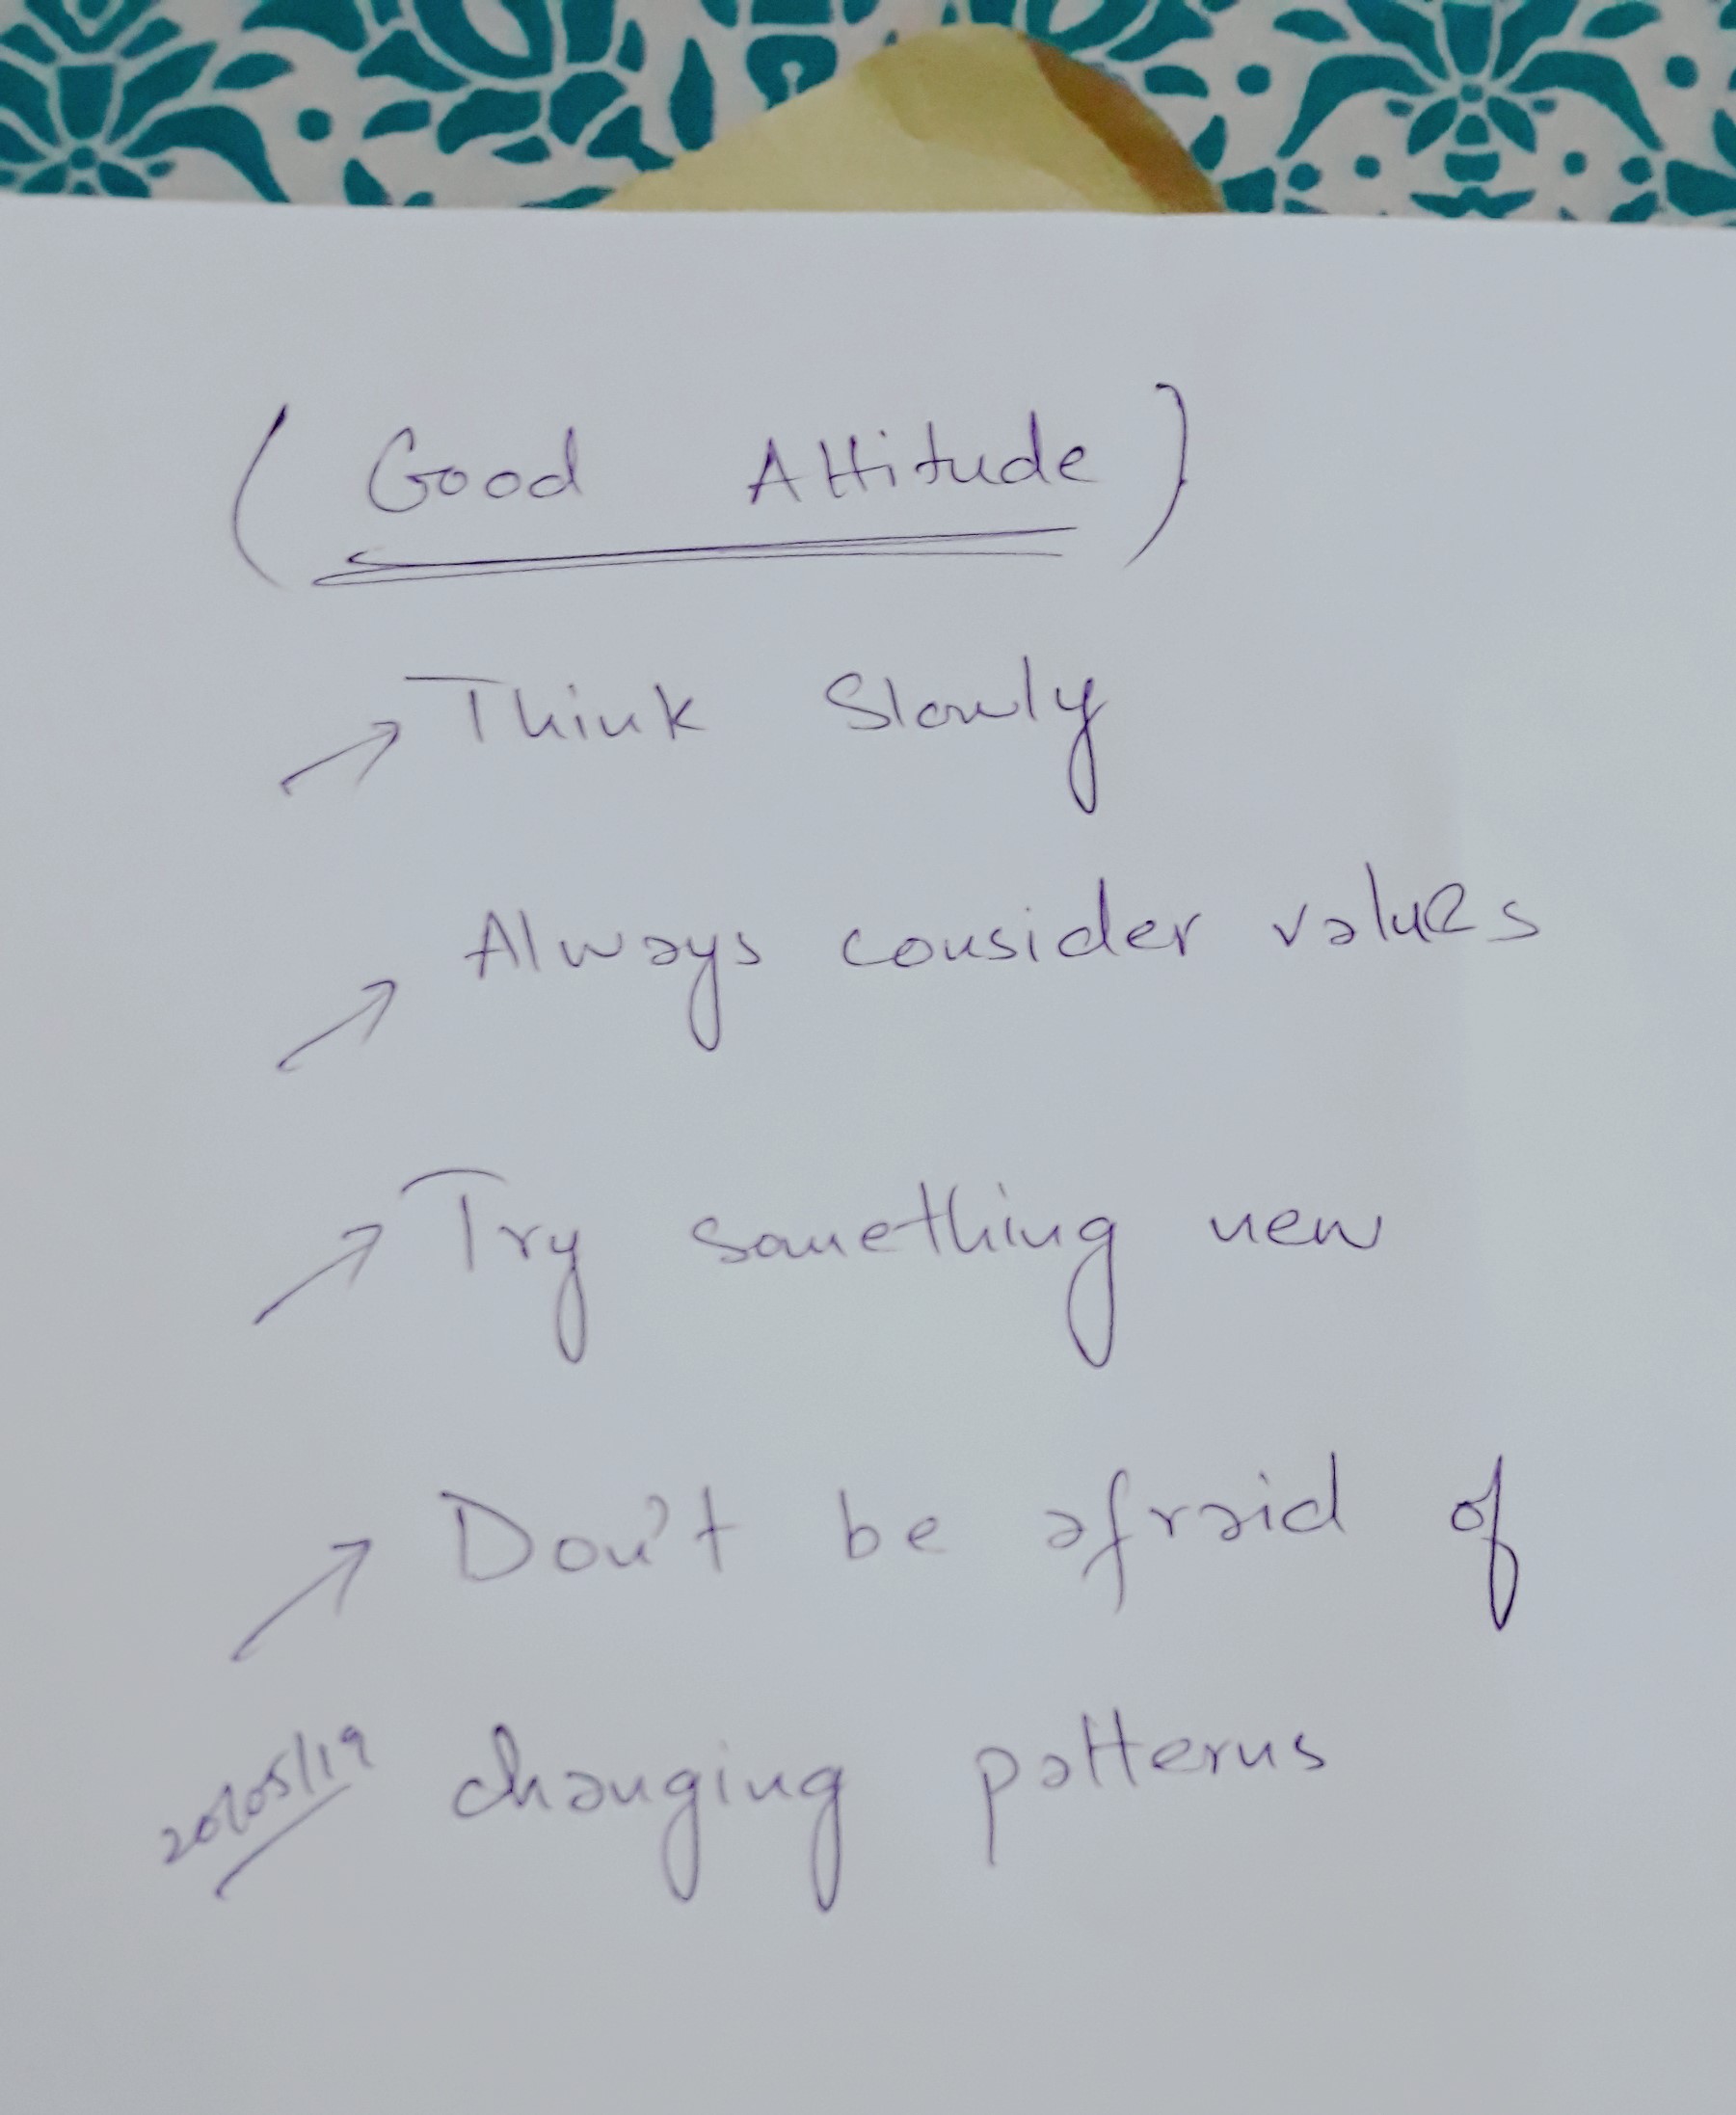 (Good Attitude)
→ Think Slowly
→ Always consider values
→ Try something new
→ Don't be afraid of
changing patterns
20/05/19